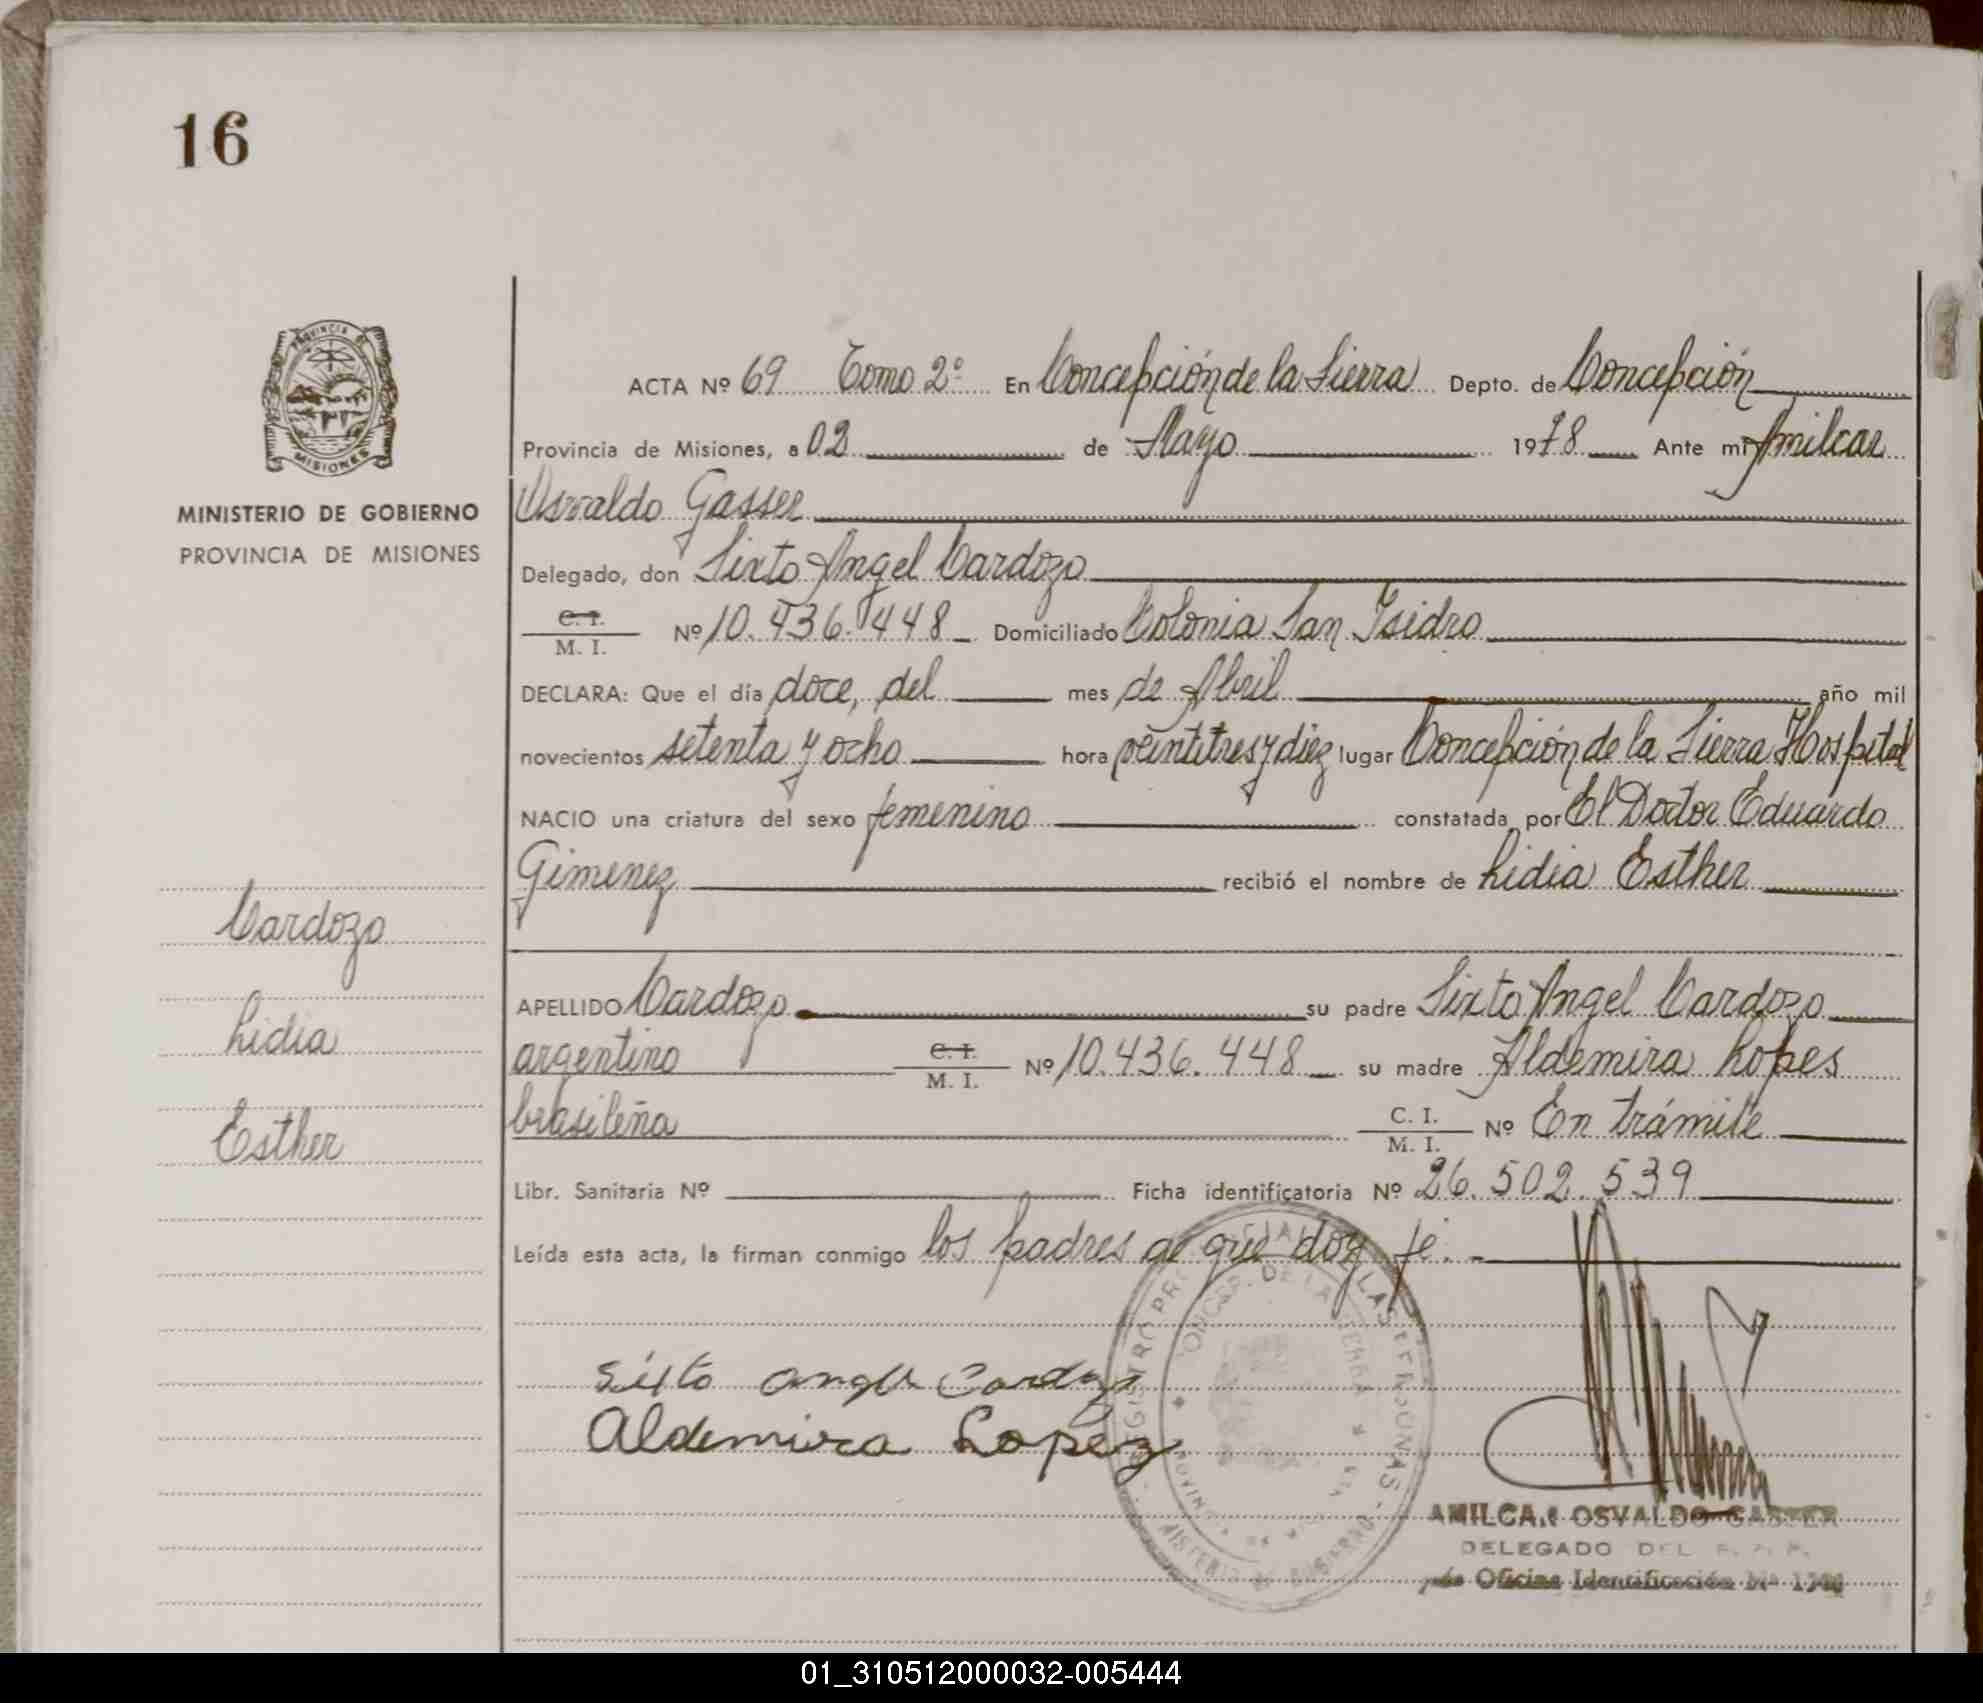 16
PROVINCIA DE
MISIONES
MINISTERIO DE GOBIERNO
PROVINCIA DE MISIONES
Cardozo
Lidia
Esther
ACTA Nº 69 Tomo 2º En Concepción de la Sierra Depto. de Concepción
Provincia de Misiones, a 02 de Mayo 1978 Ante mi Amilcar
Osvaldo Gasser
Delegado, don Sixto Angel Cardozo
C. I.
M. I. Nº 10.436.448 Domiciliado Colonia San Isidro
DECLARA: Que el día doce, del mes de Abril año mil
novecientos setenta y ocho hora veintitres y diez lugar Concepción de la Sierra Hospital
NACIO una criatura del sexo femenino constatada por El Doctor Eduardo
Gimenez recibió el nombre de Lidia Esther
APELLIDO Cardozo su padre Sixto Angel Cardozo
argentino C. I.
M. I. Nº 10.436.448 su madre Aldemira Lopes
brasileña C. I.
M. I. Nº En trámite
Libr. Sanitaria Nº Ficha identificatoria Nº 26.502.539
Leída esta acta, la firman conmigo los padres de que doy fé.
Sixto Angel Cardozo
Aldemira Lopez
REGISTRO PROVINCIAL DE LAS PERSONAS
CONCEP. DE LA SIERRA
PROVINCIA DE MISIONES
MINISTERIO DE GOBIERNO
AMILCAR OSVALDO GASSER
DELEGADO DEL R. P. P.
Oficina Identificación Nº
01_310512000032-005444